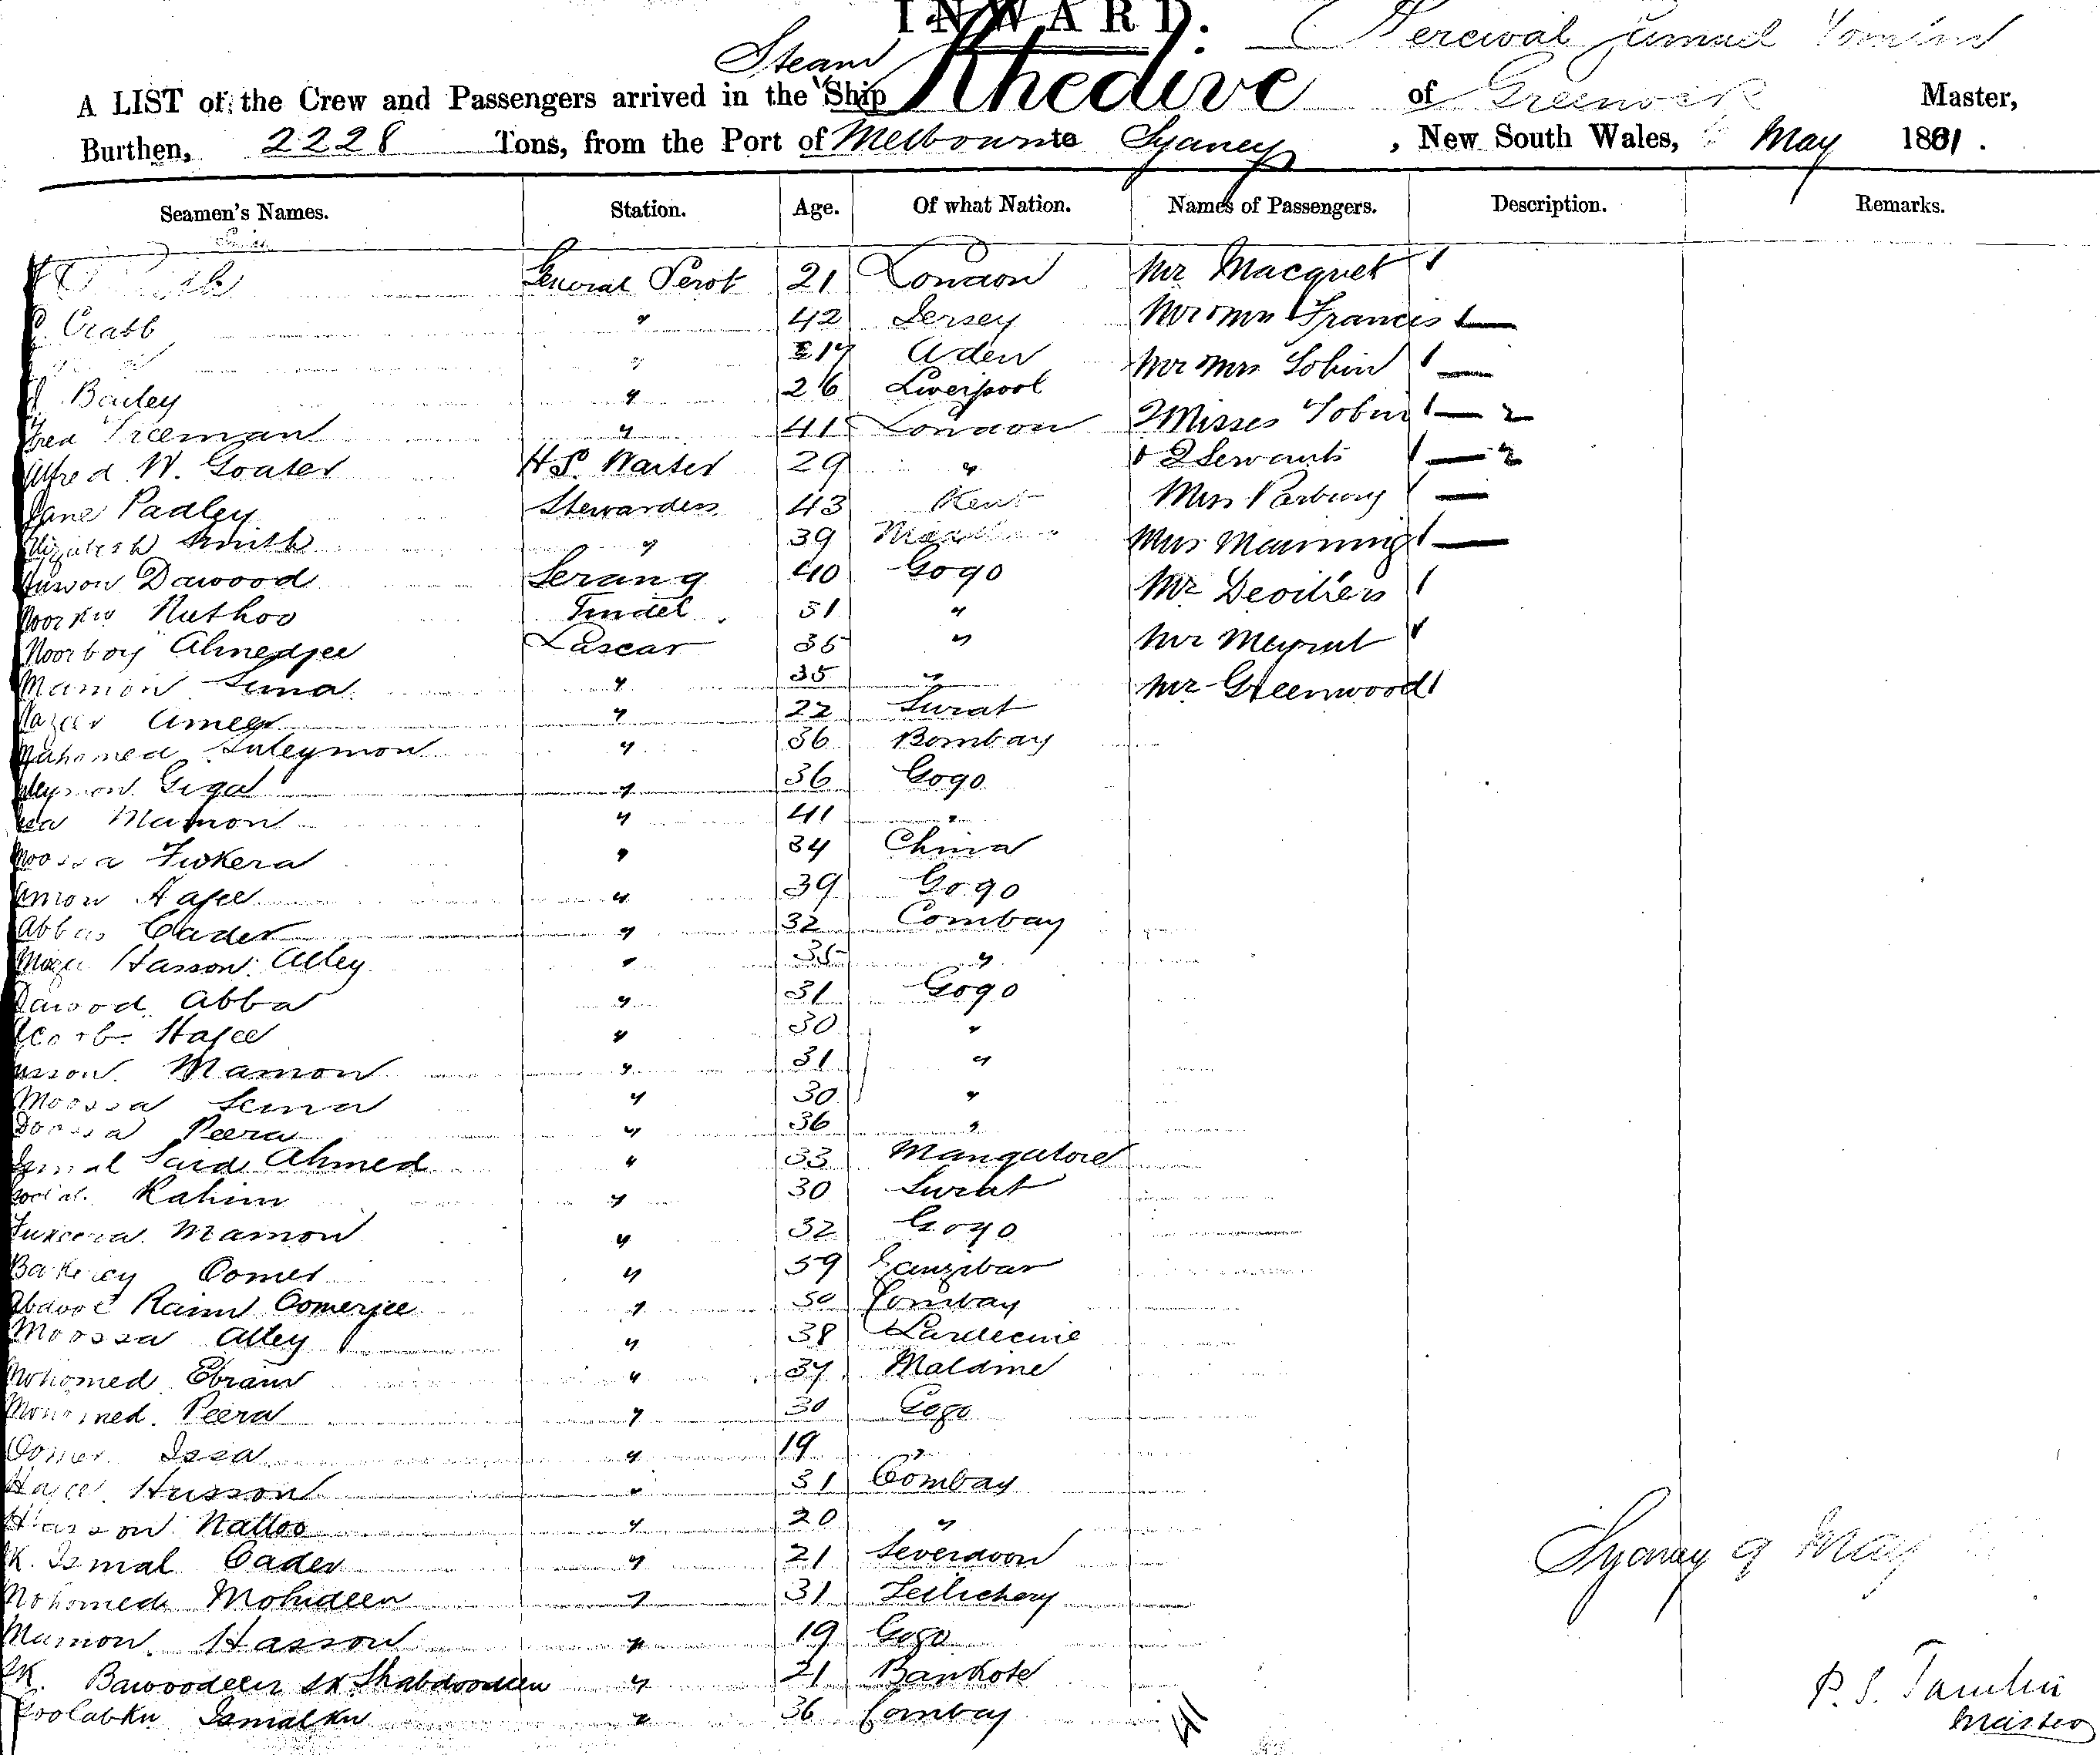 INWARD.
Percival Samuel Tomlin
A LIST of the Crew and Passengers arrived in the Steam Ship Khedive of Greenock Master,
Burthen, 2228 Tons, from the Port of Melbourne to Sydney, New South Wales, May 1881.
Seamen's Names. Station. Age. Of what Nation. Names of Passengers. Description. Remarks.
General Servt 21 London Mr Macquet
Crabb " 42 Jersey Mr & Mrs Francis
" Aden Mr & Mrs Tobin
Bailey " 26 Liverpool
Fred Freeman " 41 London 2 Misses Tobin 2
Alfred W. Goater H.S. Waiter 29 " & 2 Servants 2
Jane Padley Stewardess 43 Kent Miss Parbury
Elizabeth Smith " 39 Mrs Manning
Dawood Serang 40 Gogo Mr Devilliers
Nuthoo Tindel 31 "
Noorboy Ahmedjee Lascar 35 " Mr
Mamon " 35 " Mr Greenwood
Ameer " 22 Surat
Mahomed Suleymon " 36 Bombay
Suleymon Giga " 36 Gogo
Issa Mamon " 41 "
Moossa Fukera " 34 China
Amon Hajee " 39 Gogo
Abbas Cader " 32 Combay
Hasson Alley " 35 "
Dawood Abba " 31 Gogo
Hajee " 30 "
Husson Mamon " 31 "
Moossa " 30 "
Peera " 36 "
Ismal Said Ahmed " 33 Mangalore
Rahim " 30 Surat
Fukeera Mamon " 32 Gogo
Oomer " 59 Zanzibar
Abdool Raim Oomerjee " 50 Combay
Moossa Alley " 38 Lardecive
Mohomed Ebraim " 37 Maldive
Mohomed Peera " 30 Gogo
Oomer Issa " 19 "
Hajee Husson " 31 Combay
Hasson Nattoo " 20 "
K. Ismal Cader " 21 Severdoon
Sydney 9 May
Mohomed Mohideen " 31 Tellichery
Mamon Hasson " 19 Gogo
SK. Bawoodeen SK. Shabdoodeen " 21 Bankote
Ismalku " 36 Combay
41
P. S. Tomlin
Master